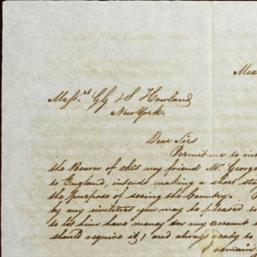 Mex
Messrs GG & S Howland
New York.
Dear Sirs
Permit me to in
the Bearer of this my friend Mr. George
to England, intends making a short sta
the purpose of seeing the Country.
by any civilities you may be pleased to
to let him have money on my account s
should require it, & I am always ready to
I remain